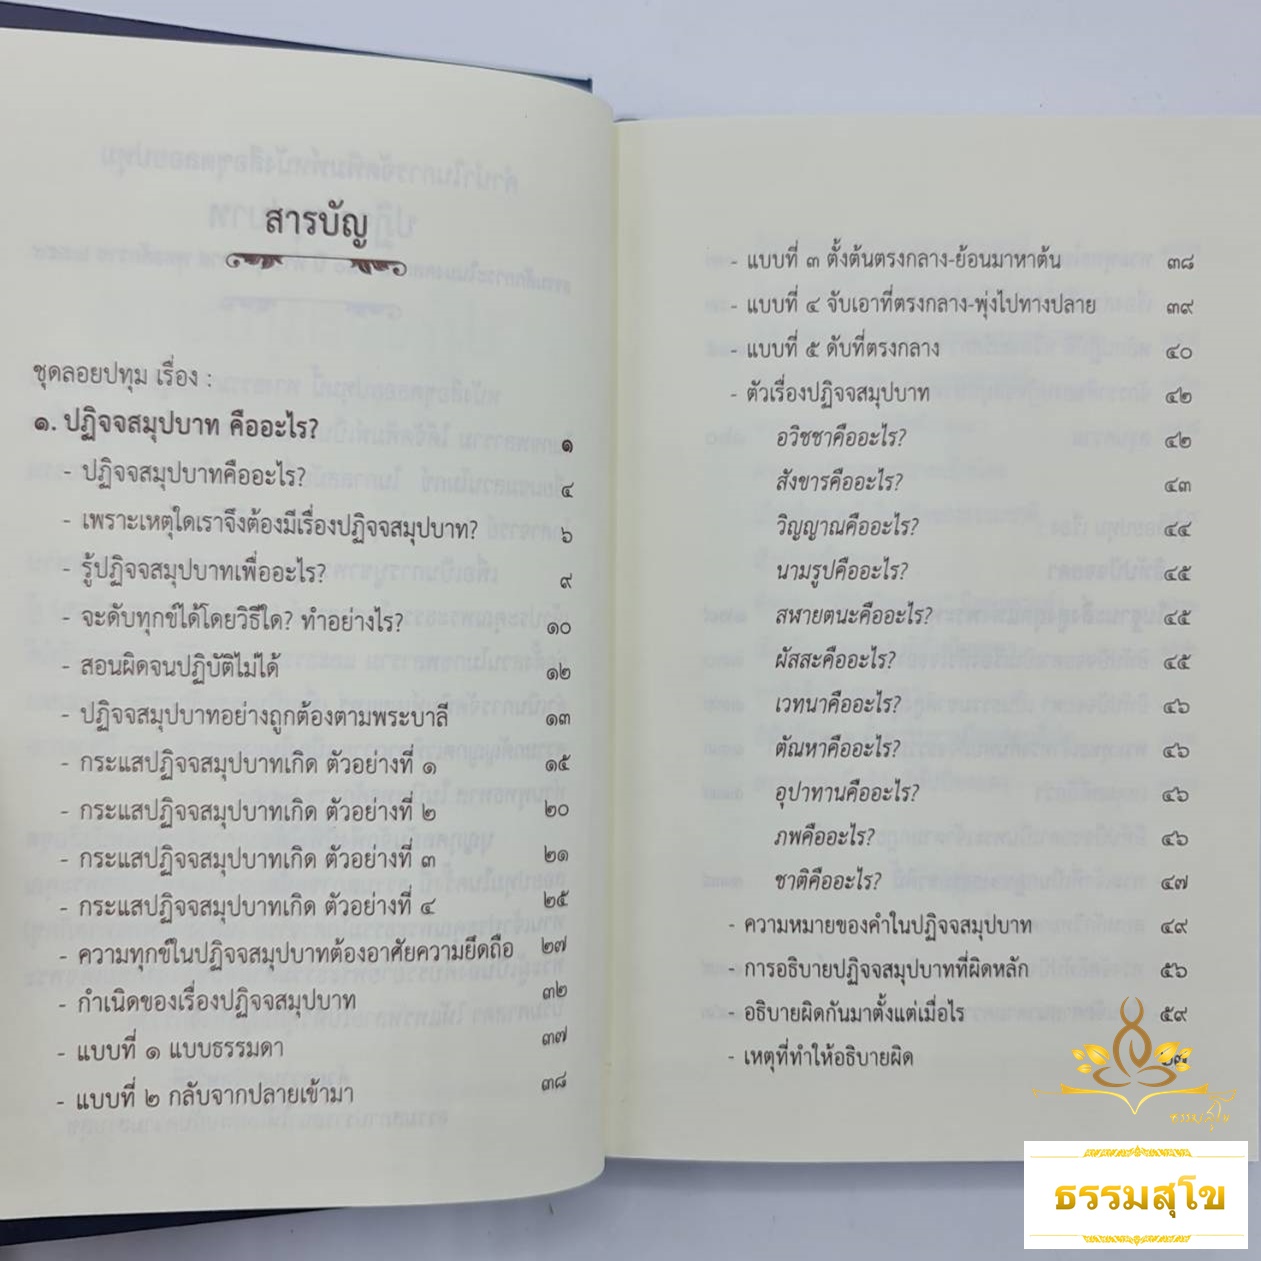 สารบัญ
ชุดลอยปทุม เรื่อง :
๑. ปฏิจจสมุปบาท คืออะไร? ๑
- ปฏิจจสมุปบาทคืออะไร? ๔
- เพราะเหตุใดเราจึงต้องมีเรื่องปฏิจจสมุปบาท? ๖
- รู้ปฏิจจสมุปบาทเพื่ออะไร? ๙
- จะดับทุกข์ได้โดยวิธีใด? ทำอย่างไร? ๑๐
- สอนผิดจนปฏิบัติไม่ได้ ๑๒
- ปฏิจจสมุปบาทอย่างถูกต้องตามพระบาลี ๑๓
- กระแสปฏิจจสมุปบาทเกิด ตัวอย่างที่ ๑ ๑๕
- กระแสปฏิจจสมุปบาทเกิด ตัวอย่างที่ ๒ ๒๐
- กระแสปฏิจจสมุปบาทเกิด ตัวอย่างที่ ๓ ๒๑
- กระแสปฏิจจสมุปบาทเกิด ตัวอย่างที่ ๔ ๒๕
- ความทุกข์ในปฏิจจสมุปบาทต้องอาศัยความยึดถือ ๒๗
- กำเนิดของเรื่องปฏิจจสมุปบาท ๓๒
- แบบที่ ๑ แบบธรรมดา ๓๗
- แบบที่ ๒ กลับจากปลายเข้ามา ๓๘
- แบบที่ ๓ ตั้งต้นตรงกลาง-ย้อนมาหาต้น ๓๘
- แบบที่ ๔ จับเอาที่ตรงกลาง-พุ่งไปทางปลาย ๓๙
- แบบที่ ๕ ดับที่ตรงกลาง ๔๐
- ตัวเรื่องปฏิจจสมุปบาท ๔๒
อวิชชาคืออะไร? ๔๒
สังขารคืออะไร? ๔๓
วิญญาณคืออะไร? ๔๔
นามรูปคืออะไร? ๔๕
สฬายตนะคืออะไร? ๔๕
ผัสสะคืออะไร? ๔๕
เวทนาคืออะไร? ๔๖
ตัณหาคืออะไร? ๔๖
อุปาทานคืออะไร? ๔๖
ภพคืออะไร? ๔๖
ชาติคืออะไร? ๔๗
- ความหมายของคำในปฏิจจสมุปบาท ๔๙
- การอธิบายปฏิจจสมุปบาทที่ผิดหลัก ๕๖
- อธิบายผิดกันมาตั้งแต่เมื่อไร ๕๙
- เหตุที่ทำให้อธิบายผิด
ธรรมสุโข
ธรรมสุโข